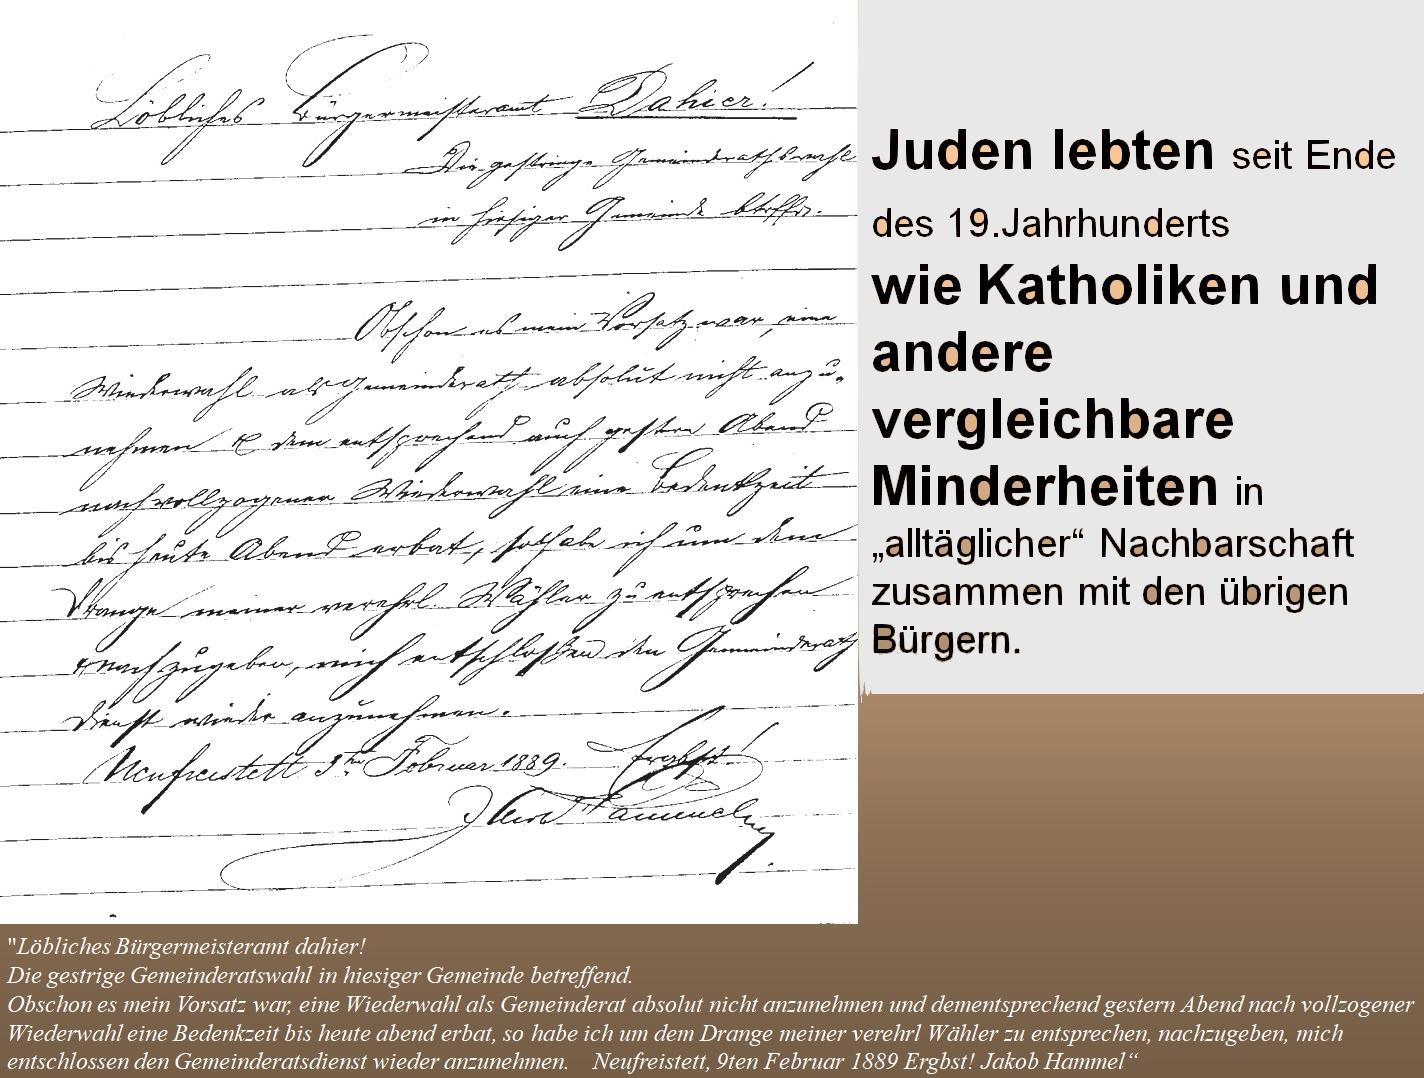 Löbliches Bürgermeisteramt Dahier!
Die gestrige Gemeinderathswahl
in hiesiger Gemeinde btrffd.
Obschon es mein Vorsatz war, eine
Wiederwahl als Gemeinderath absolut nicht anzu-
nehmen & dem entsprechend auch gestern Abend
nach vollzogener Wiederwahl eine Bedenkzeit
bis heute Abend erbat, so habe ich um dem
Drange meiner verehrl Wähler zu entsprechen
& nachzugeben, mich entschloßen den Gemeinderath
dienst wieder anzunehmen.
Neufreistett 9ten Februar 1889. Ergbst!
Jakob Hammel
Juden lebten seit Ende
des 19.Jahrhunderts
wie Katholiken und
andere
vergleichbare
Minderheiten in
„alltäglicher“ Nachbarschaft
zusammen mit den übrigen
Bürgern.
"Löbliches Bürgermeisteramt dahier!
Die gestrige Gemeinderatswahl in hiesiger Gemeinde betreffend.
Obschon es mein Vorsatz war, eine Wiederwahl als Gemeinderat absolut nicht anzunehmen und dementsprechend gestern Abend nach vollzogener
Wiederwahl eine Bedenkzeit bis heute abend erbat, so habe ich um dem Drange meiner verehrl Wähler zu entsprechen, nachzugeben, mich
entschlossen den Gemeinderatsdienst wieder anzunehmen. Neufreistett, 9ten Februar 1889 Ergbst! Jakob Hammel“